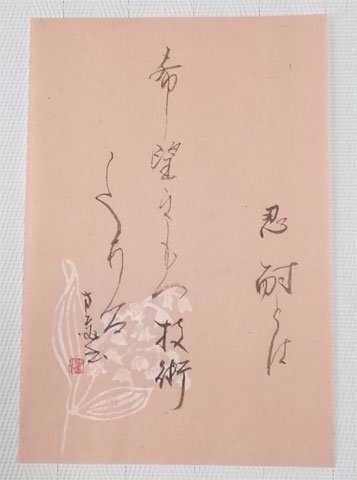 忍耐とは
希望をもつ技術
である